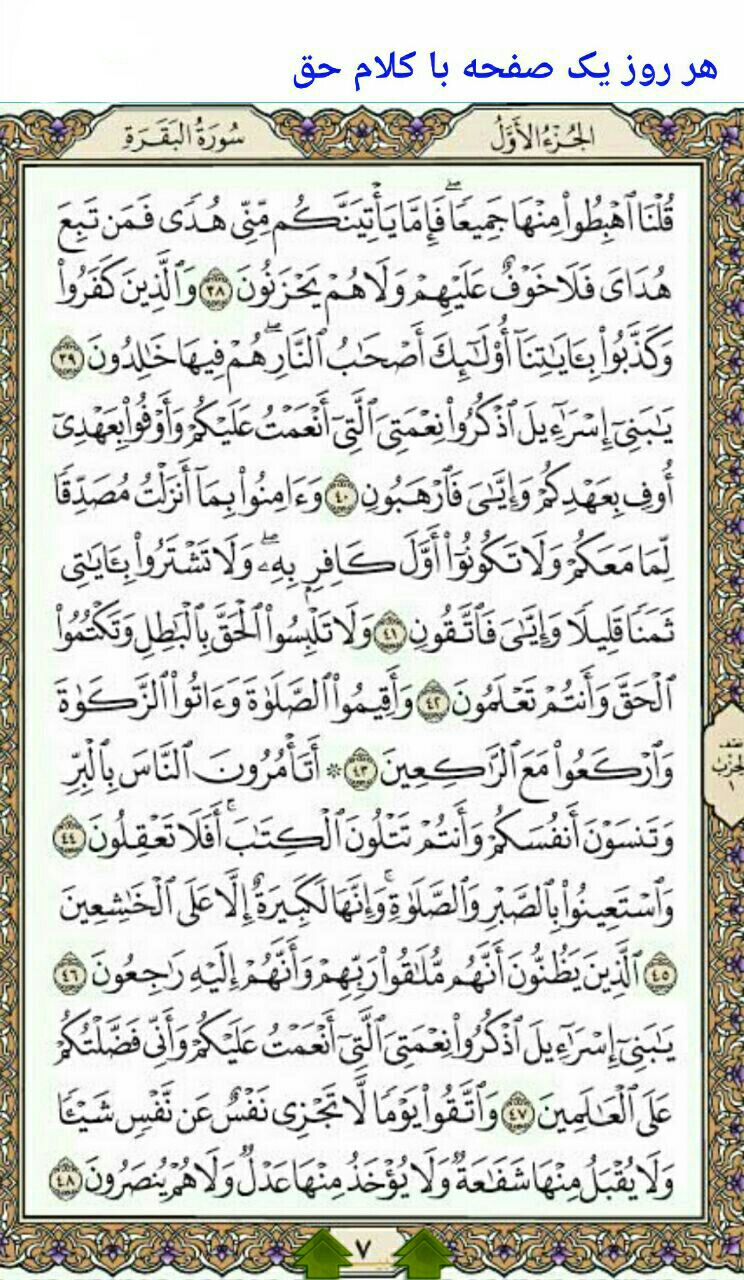 هر روز یک صفحه با کلام حق
الجُزْءُ الأَوَّلُ
سُورَةُ البَقَرَةِ
قُلْنَا ٱهْبِطُوا۟ مِنْهَا جَمِيعًاۖ فَإِمَّا يَأْتِيَنَّكُم مِّنِّى هُدًى فَمَن تَبِعَ
هُدَاىَ فَلَا خَوْفٌ عَلَيْهِمْ وَلَا هُمْ يَحْزَنُونَ ٣٨ وَٱلَّذِينَ كَفَرُوا۟
وَكَذَّبُوا۟ بِـَٔايَـٰتِنَآ أُو۟لَـٰٓئِكَ أَصْحَـٰبُ ٱلنَّارِۖ هُمْ فِيهَا خَـٰلِدُونَ ٣٩
يَـٰبَنِىٓ إِسْرَٰٓءِيلَ ٱذْكُرُوا۟ نِعْمَتِىَ ٱلَّتِىٓ أَنْعَمْتُ عَلَيْكُمْ وَأَوْفُوا۟ بِعَهْدِىٓ
أُوفِ بِعَهْدِكُمْ وَإِيَّـٰىَ فَٱرْهَبُونِ ٤٠ وَءَامِنُوا۟ بِمَآ أَنزَلْتُ مُصَدِّقًا
لِّمَا مَعَكُمْ وَلَا تَكُونُوٓا۟ أَوَّلَ كَافِرٍۭ بِهِۦۖ وَلَا تَشْتَرُوا۟ بِـَٔايَـٰتِى
ثَمَنًا قَلِيلًا وَإِيَّـٰىَ فَٱتَّقُونِ ٤١ وَلَا تَلْبِسُوا۟ ٱلْحَقَّ بِٱلْبَـٰطِلِ وَتَكْتُمُوا۟
ٱلْحَقَّ وَأَنتُمْ تَعْلَمُونَ ٤٢ وَأَقِيمُوا۟ ٱلصَّلَوٰةَ وَءَاتُوا۟ ٱلزَّكَوٰةَ
وَٱرْكَعُوا۟ مَعَ ٱلرَّٰكِعِينَ ٤٣ ۞ أَتَأْمُرُونَ ٱلنَّاسَ بِٱلْبِرِّ
نصف
الحزب
١
وَتَنسَوْنَ أَنفُسَكُمْ وَأَنتُمْ تَتْلُونَ ٱلْكِتَـٰبَۚ أَفَلَا تَعْقِلُونَ ٤٤
وَٱسْتَعِينُوا۟ بِٱلصَّبْرِ وَٱلصَّلَوٰةِۚ وَإِنَّهَا لَكَبِيرَةٌ إِلَّا عَلَى ٱلْخَـٰشِعِينَ
٤٥ ٱلَّذِينَ يَظُنُّونَ أَنَّهُم مُّلَـٰقُوا۟ رَبِّهِمْ وَأَنَّهُمْ إِلَيْهِ رَٰجِعُونَ ٤٦
يَـٰبَنِىٓ إِسْرَٰٓءِيلَ ٱذْكُرُوا۟ نِعْمَتِىَ ٱلَّتِىٓ أَنْعَمْتُ عَلَيْكُمْ وَأَنِّى فَضَّلْتُكُمْ
عَلَى ٱلْعَـٰلَمِينَ ٤٧ وَٱتَّقُوا۟ يَوْمًا لَّا تَجْزِى نَفْسٌ عَن نَّفْسٍ شَيْـًٔا
وَلَا يُقْبَلُ مِنْهَا شَفَـٰعَةٌ وَلَا يُؤْخَذُ مِنْهَا عَدْلٌ وَلَا هُمْ يُنصَرُونَ ٤٨
٧